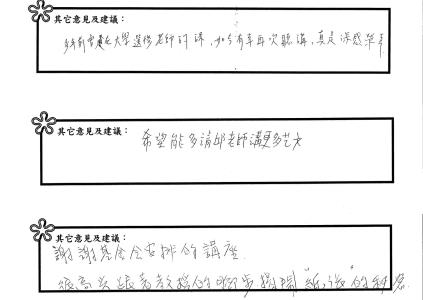 其它意見及建議：
多年前曾在大學選修老師的課，如今有幸再次聽講，真是深感榮幸
其它意見及建議：
希望能多請邱老師講更多藝文
其它意見及建議：
謝謝基金會安排的講座
很高興跟著教授的腳步揭開"紙浪"的